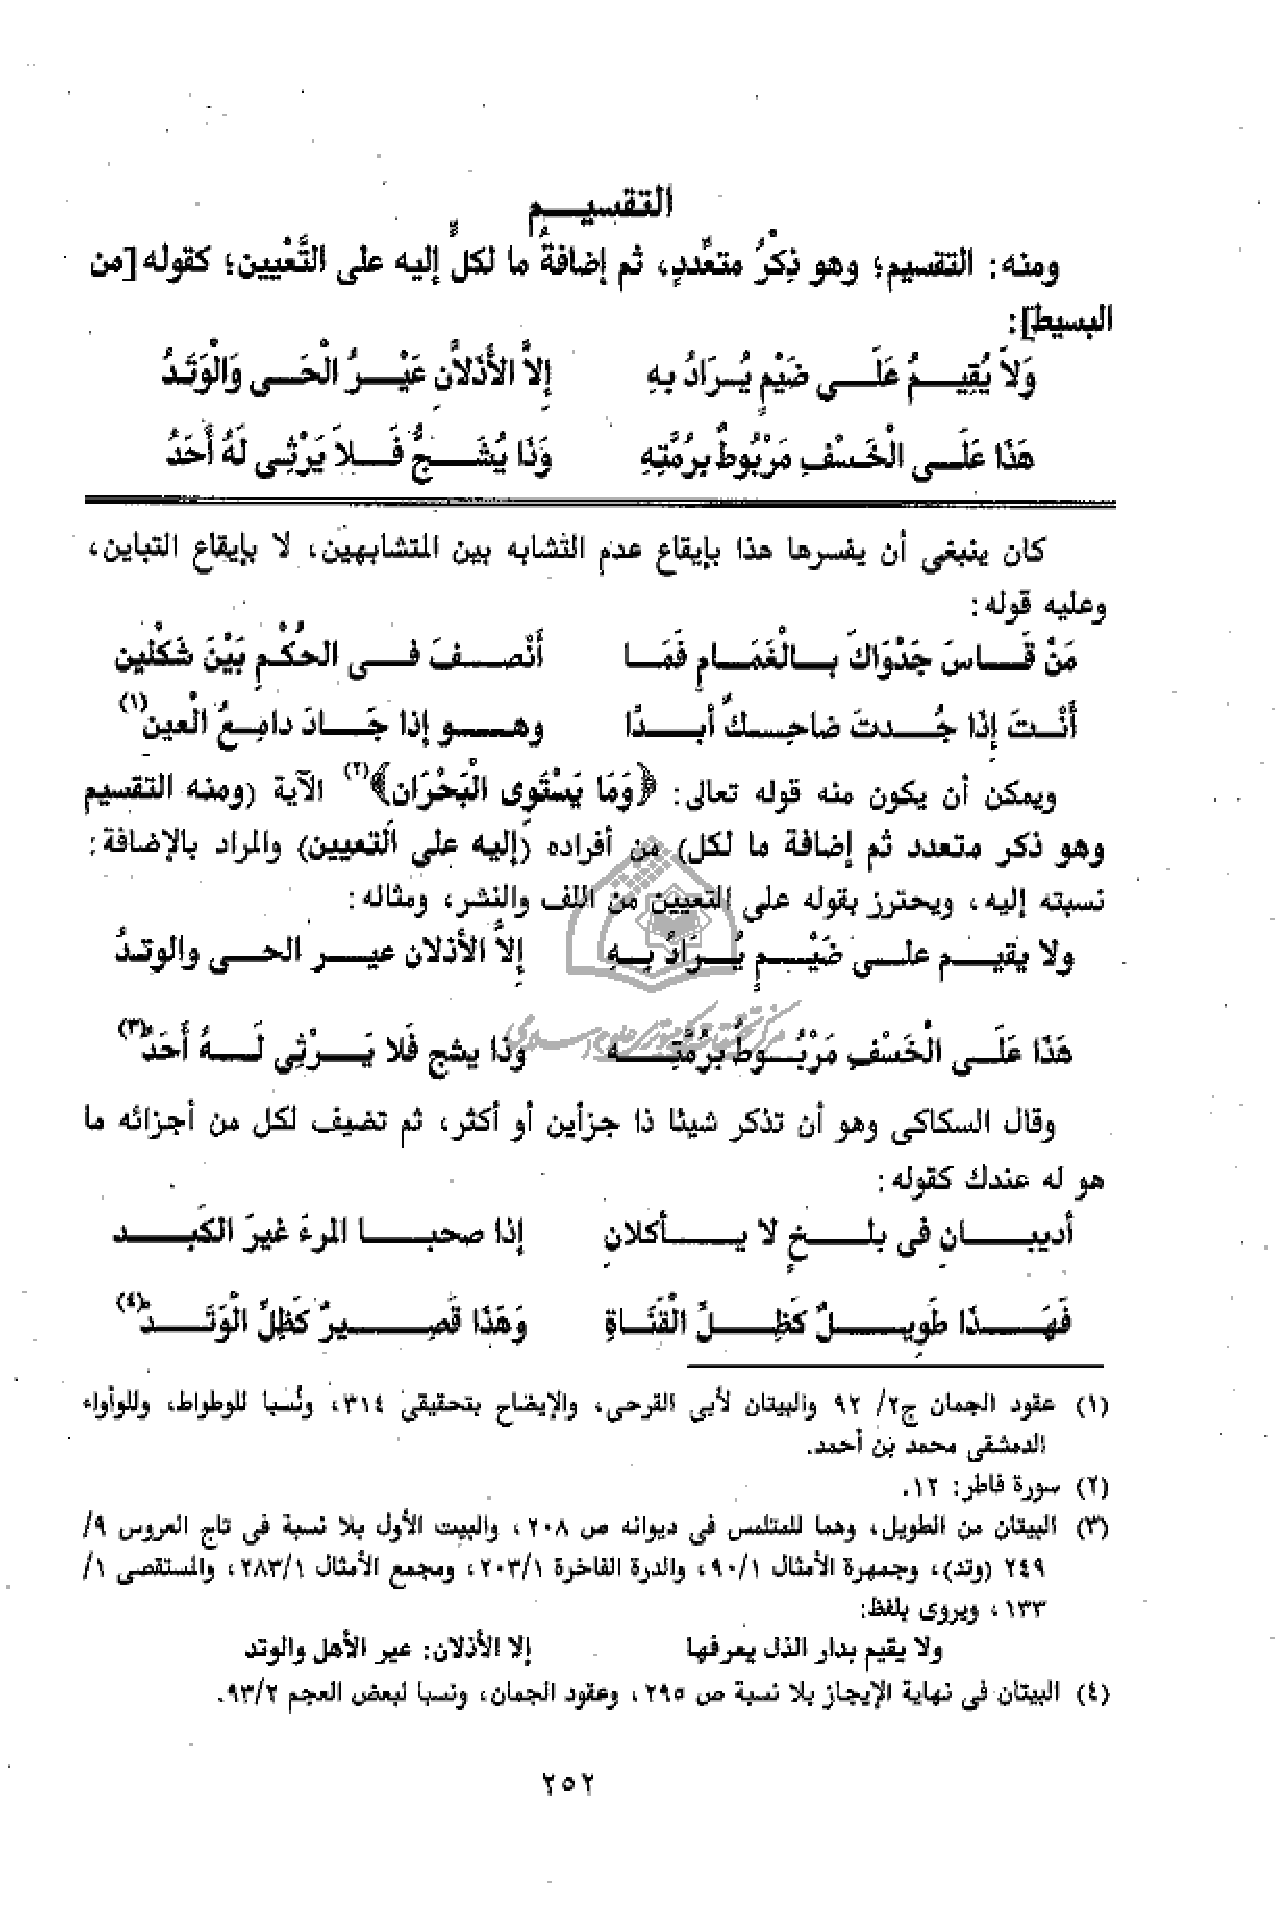 التقسيم
ومنه: التقسيم؛ وهو ذِكْرُ متعَّددٍ، ثم إضافةُ ما لكلٍّ إليه على التَّعْيين؛ كقوله [من
البسيط]:
وَلاَ يُقِيمُ عَلَى ضَيْمٍ يُرَادُ بهِ إلاَّ الأَذَلاَّنِ عَيْرُ الْحَى وَالْوَتَدُ
هَذَا عَلَى الْخَسْفِ مَرْبُوطٌ بِرُمَّتِهِ وَذَا يُشَجُّ فَلاَ يَرْثِى لَهُ أَحَدُ
كان ينبغى أن يفسرها هذا بإيقاع عدم التشابه بين المتشابهين، لا بإيقاع التباين،
وعليه قوله:
مَنْ قَاسَ جَدْوَاكَ بالْغَمَامِ فَمَا أَنْصفَ فى الحُكْمِ بَيْنَ شَكْلين
أَنْتَ إِذَا جُدتَ ضاحِكٌ أبدًا وهو إذا جَادَ دامِعُ الْعين(١)
ويمكن أن يكون منه قوله تعالى: ﴿وَمَا يَسْتَوِى الْبَحْرَان﴾(٢) الآية (ومنه التقسيم
وهو ذكر متعدد ثم إضافة ما لكل) من أفراده (إليه على التعيين) والمراد بالإضافة:
نسبته إليه، ويحترز بقوله على التعيين من اللف والنشر، ومثاله:
ولا يقيم على ضَيْمٍ يُرَادُ بهِ إلاَّ الأذلان عير الحى والوتدُ
هَذَا عَلَى الْخَسْفِ مَرْبُوطٌ بِرُمَّتِه وذا يشج فَلا يَرْثِى لَهُ أَحَدُ(٣)
وقال السكاكى وهو أن تذكر شيئا ذا جزأين أو أكثر، ثم تضيف لكل من أجزائه ما
هو له عندك كقوله:
أديبانِ فى بلخٍ لا يأكلانِ إذا صحبا المرءَ غيرَ الكَبد
فَهَذَا طَوِيلٌ كَظِلِّ الْقَنَاةِ وَهَذَا قَصِيرٌ كَظِلِّ الْوَتَد(٤)
(١) عقود الجمان ج٢/ ٩٢ والبيتان لأبى القرحى، والإيضاح بتحقيقى ٣١٤، ونُسبا للوطواط، وللوأواء
الدمشقى محمد بن أحمد.
(٢) سورة فاطر: ١٢.
(٣) البيتان من الطويل، وهما للمتلمس فى ديوانه ص ٢٠٨، والبيت الأول بلا نسبة فى تاج العروس ٩/
٢٤٩ (وتد)، وجمهرة الأمثال ٩٠/١، والدرة الفاخرة ٢٠٣/١، ومجمع الأمثال ٢٨٣/١، والمستقصى ١/
١٣٣، ويروى بلفظ:
ولا يقيم بدار الذل يعرفها إلا الأذلان: عير الأهل والوتد
(٤) البيتان فى نهاية الإيجاز بلا نسبة ص ٢٩٥، وعقود الجمان، ونسبا لبعض العجم ٩٣/٢.
٢٥٢